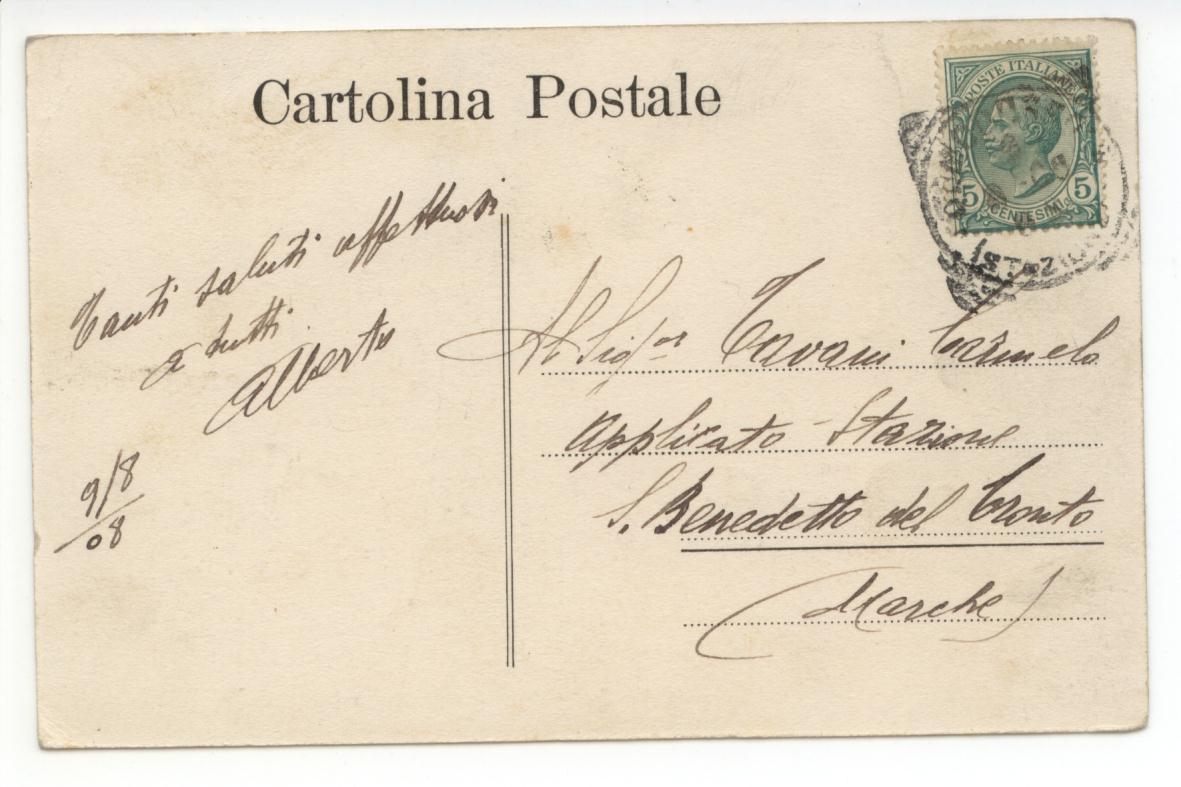 Cartolina Postale
POSTE ITALIANE
5 5
CENTESIMI
Tanti saluti affettuosi
a tutti
Alberto
9/8
08
Al Sigor Tavani Carmelo
Applicato Stazione
S. Benedetto del Tronto
(Marche)